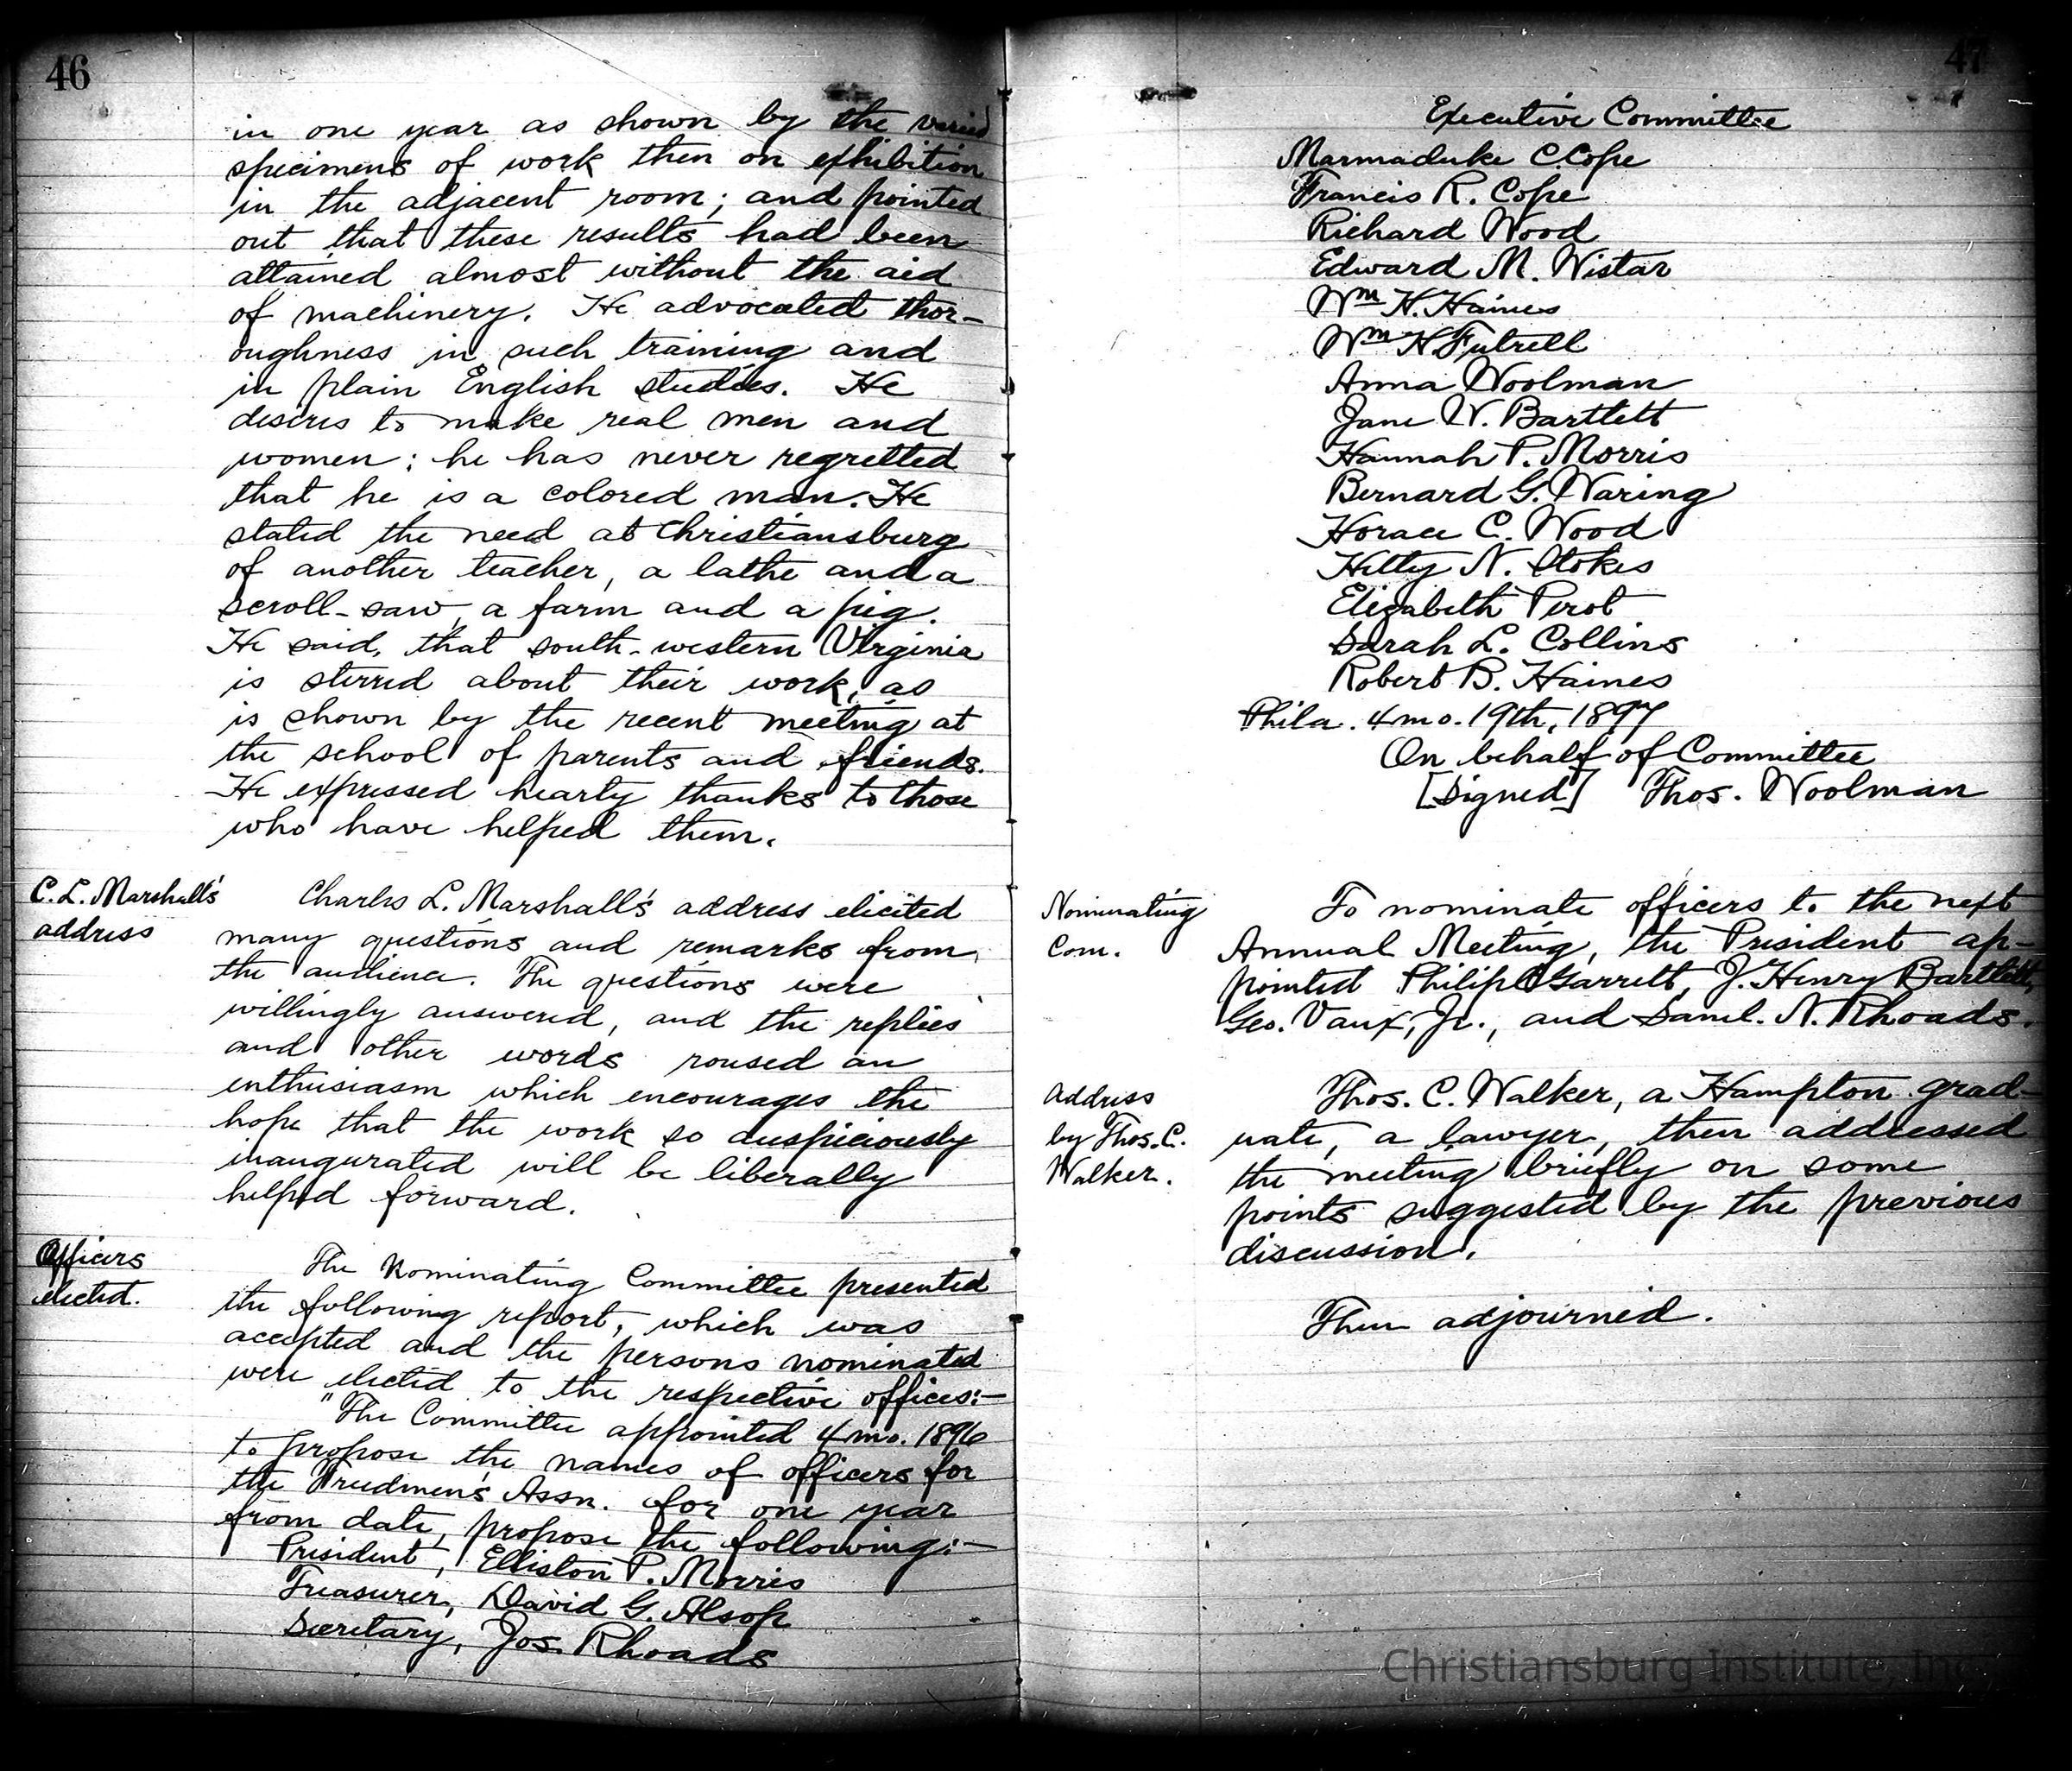 46
in one year as shown by the varied
specimens of work then on exhibition
in the adjacent room; and pointed
out that these results had been
attained almost without the aid
of machinery. He advocated thor-
oughness in such training and
in plain English studies. He
desires to make real men and
women; he has never regretted
that he is a colored man. He
stated the need at Christiansburg
of another teacher, a lathe and a
scroll-saw, a farm and a pig.
He said, that south-western Virginia
is stirred about their work, as
is shown by the recent meeting at
the school of parents and friends.
He expressed hearty thanks to those
who have helped them.
C. L. Marshall's
address
Charles L. Marshall's address elicited
many questions and remarks from
the audience. The questions were
willingly answered, and the replies
and other words roused an
enthusiasm which encourages the
hope that the work so auspiciously
inaugurated will be liberally
helped forward.
Officers
elected.
The Nominating Committee presented
the following report, which was
accepted and the persons nominated
were elected to the respective offices:-
"The Committee appointed 4 mo. 1896
to propose the names of officers for
the Freedmen's Assn. for one year
from date, propose the following:-
President, Elliston P. Morris
Treasurer, David G. Alsop
Secretary, Jos. Rhoads
47
Executive Committee
Marmaduke C. Cope
Francis R. Cope
Richard Wood
Edward M. Wistar
Wm H. Haines
Wm H. Futrell
Anna Woolman
Jane W. Bartlett
Hannah P. Morris
Bernard G. Waring
Horace C. Wood
Hetty N. Stokes
Elizabeth Perot
Sarah L. Collins
Robert B. Haines
Phila. 4 mo. 19th, 1897
On behalf of Committee
[Signed] Thos. Woolman
Nominating
Com.
To nominate officers to the next
Annual Meeting, the President ap-
pointed Philip C Garrett, J. Henry Bartlett,
Geo. Vaux, Jr., and Saml. N. Rhoads.
Address
by Thos. C.
Walker.
Thos. C. Walker, a Hampton grad-
uate, a lawyer, then addressed
the meeting briefly on some
points suggested by the previous
discussion.
Then adjourned.
Christiansburg Institute, Inc